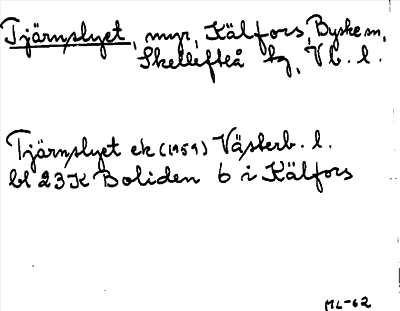 Tjärnslyet, myr, Kälfors, Byske sn,
Skellefteå tg, Vb. l.
Tjärnslyet ek (1959) Västerb. l.
bl 23K Boliden 6 i Kälfors
ML-62